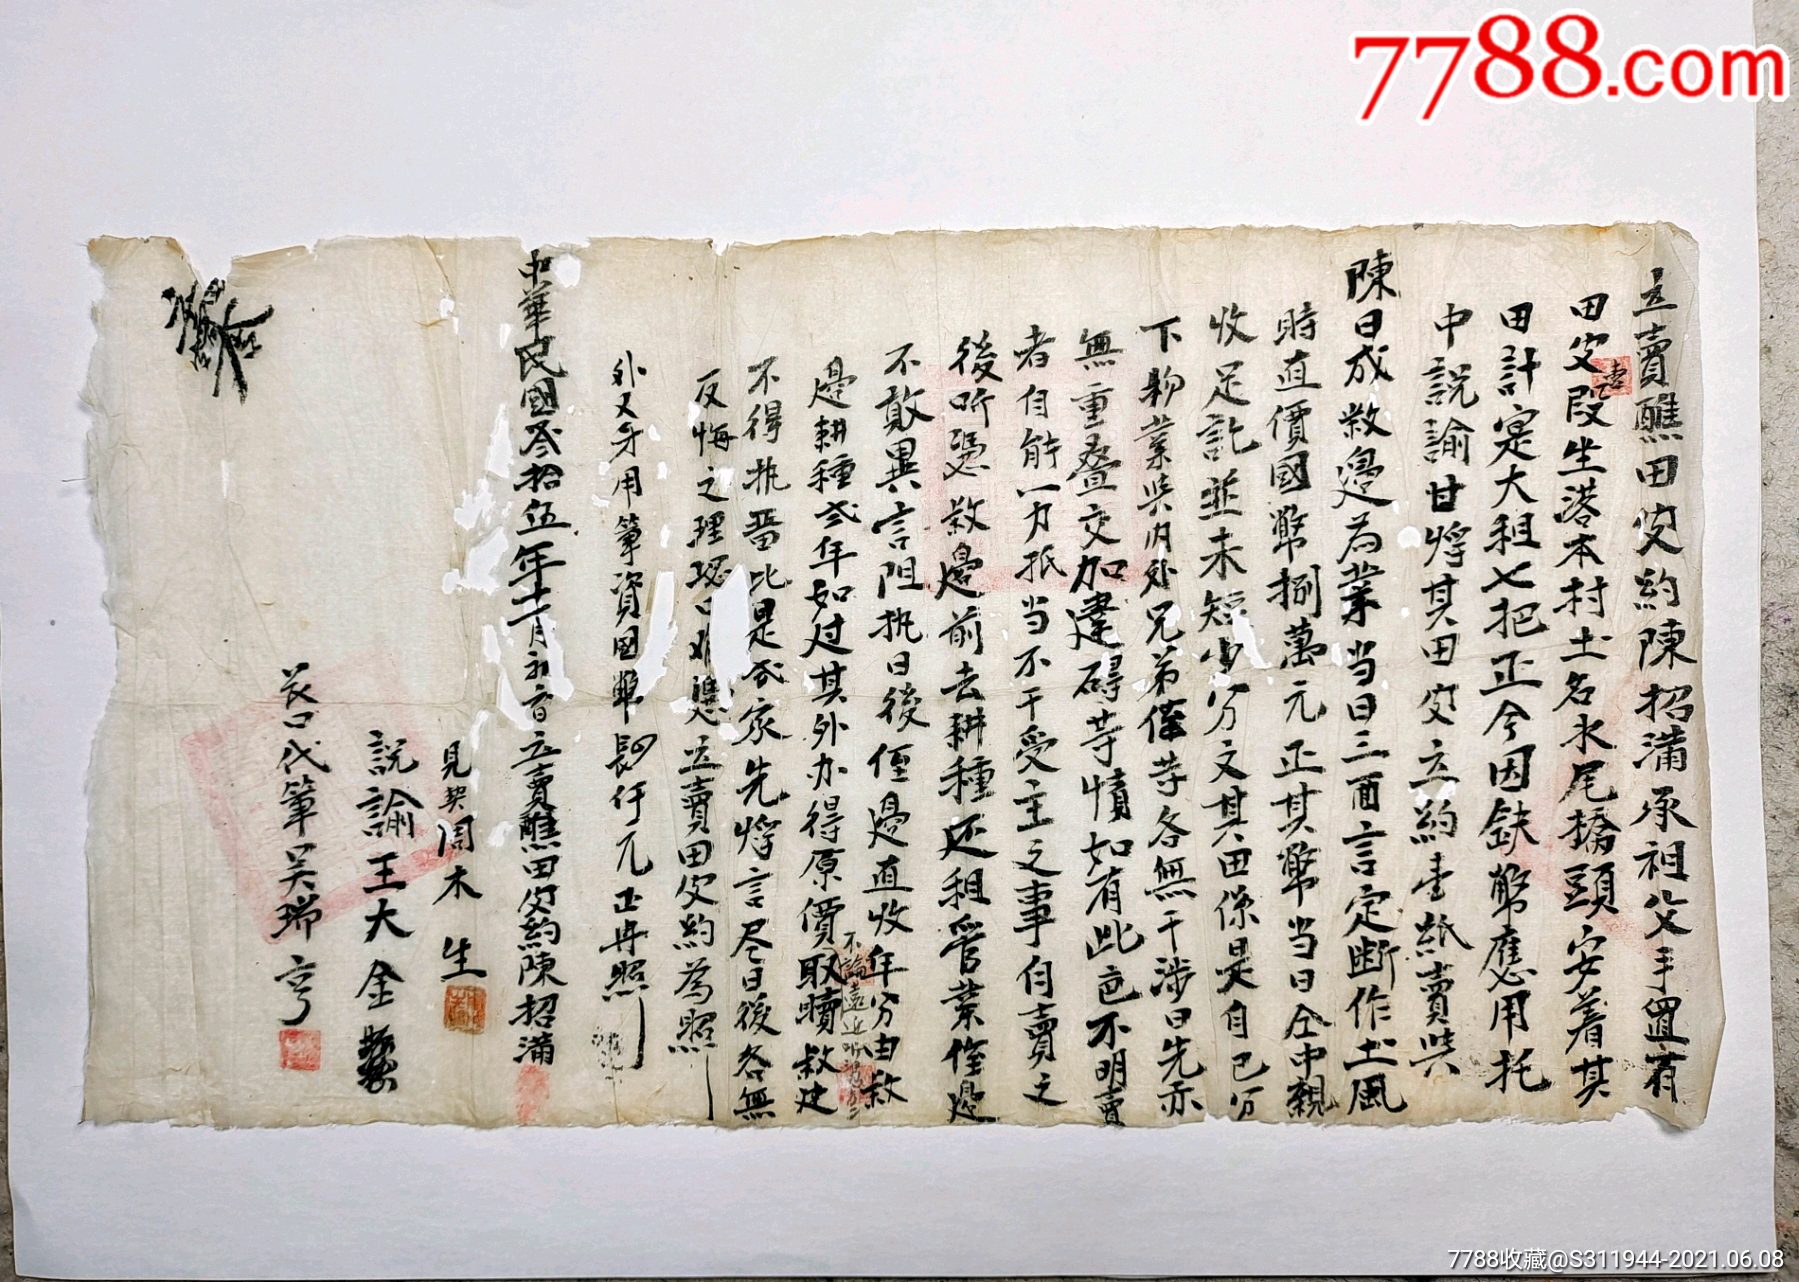 7788.com
立賣醮田皮約陳招滿承祖父手置有
田皮壹段坐落本村土名水尾擔頭安着其
田計寔大租七把正今因缺幣應用托
中説諭甘將其田皮立約壹紙賣與
陳日成叔邊為業当日三面言定断作土風
時直價國幣捌萬元正其幣当日仝中親
收足訖並未短少分文其田係是自己分
下物業與内外兄弟侄等各無干涉日先亦
無重叠交加違碍等情如有此色不明賣
者自能一力抵当不干受主之事自賣之
後听憑叔邊前去耕種还租管業侄邊
不敢異言阻执日後侄邊直收年分由叔
不論遠近
邊耕種叁年如过其外办得原價取贖叔邊
不得执番此是叁家先将言尽日後各無
反悔之理 口 憑立賣田皮約為照
外又牙用筆資國幣 仟元正再照
中華民國叁拾伍年十 月 立賣醮田皮約陳招滿
見契周木生
説諭王大金
代筆吴瑞亨
7788收藏@S311944-2021.06.08